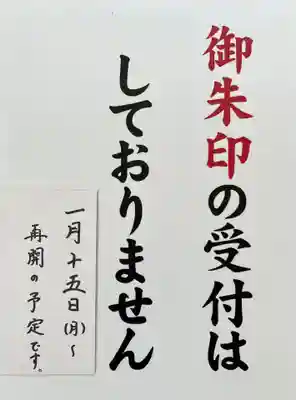 御朱印の受付は
しておりません
一月十五日(月)〜
再開の予定です。